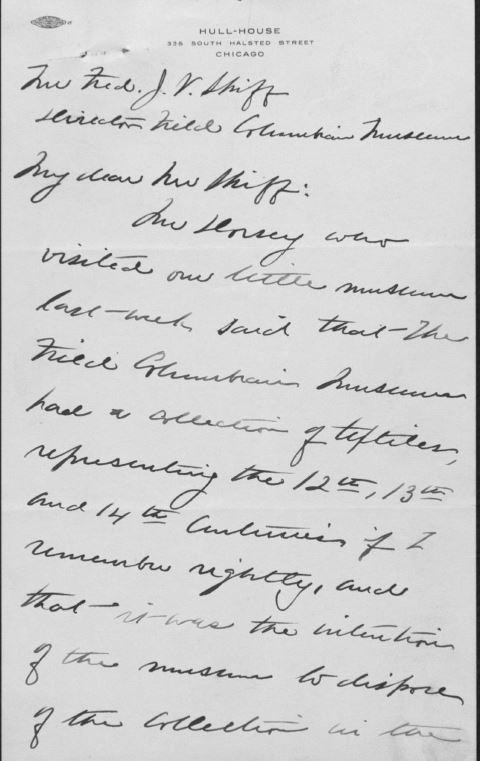 HULL-HOUSE
335 SOUTH HALSTED STREET
CHICAGO
Mr Fred. J. V. Skiff
Director Field Columbian Museum
My dear Mr Skiff:
Mr Dorsey who
visited our little museum
last week said that the
Field Columbian Museum
had a collection of textiles,
representing the 12th, 13th
and 14th Centuries if I
remember rightly, and
that it was the intention
of the museum to dispose
of the collection in the